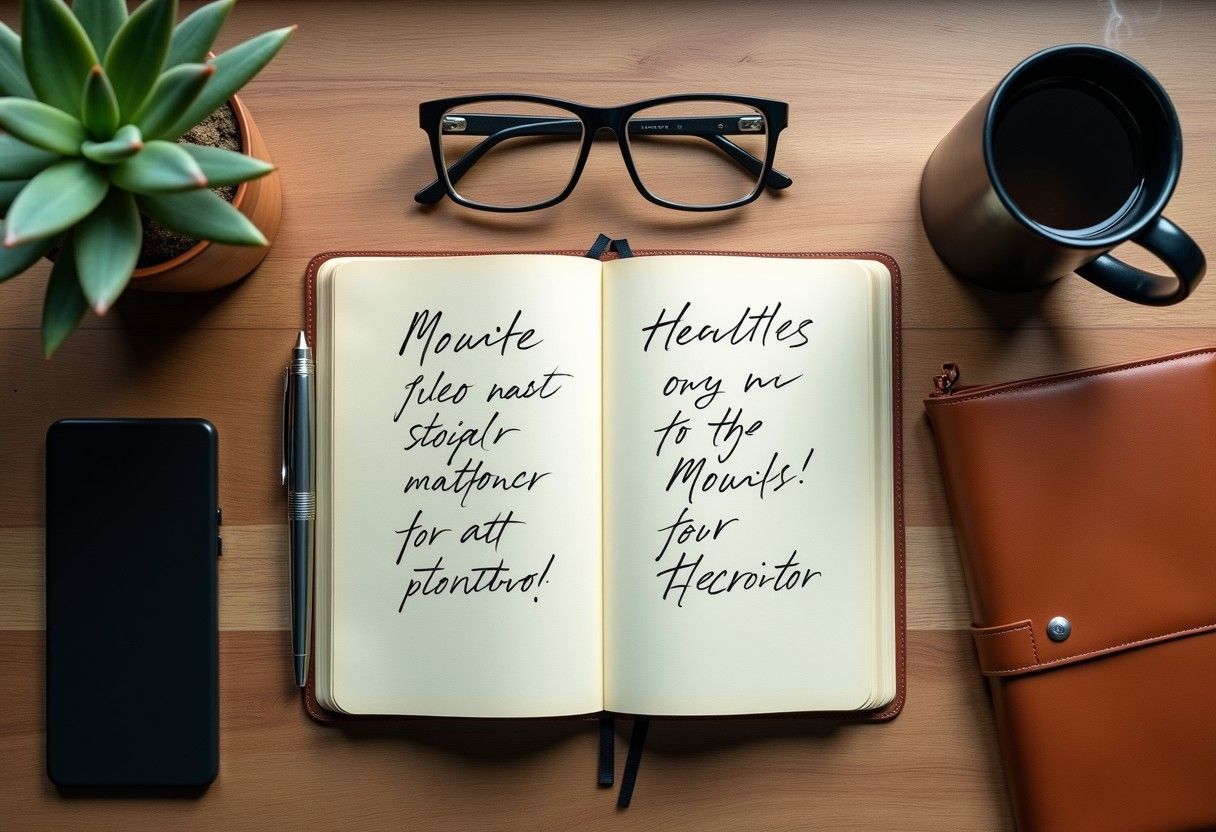 Mouite
fleo nast
stoipalr
matfoncr
for att
ptonttvo!
Healtles
ony nv
to the
Mouils!
four
Hecroitor